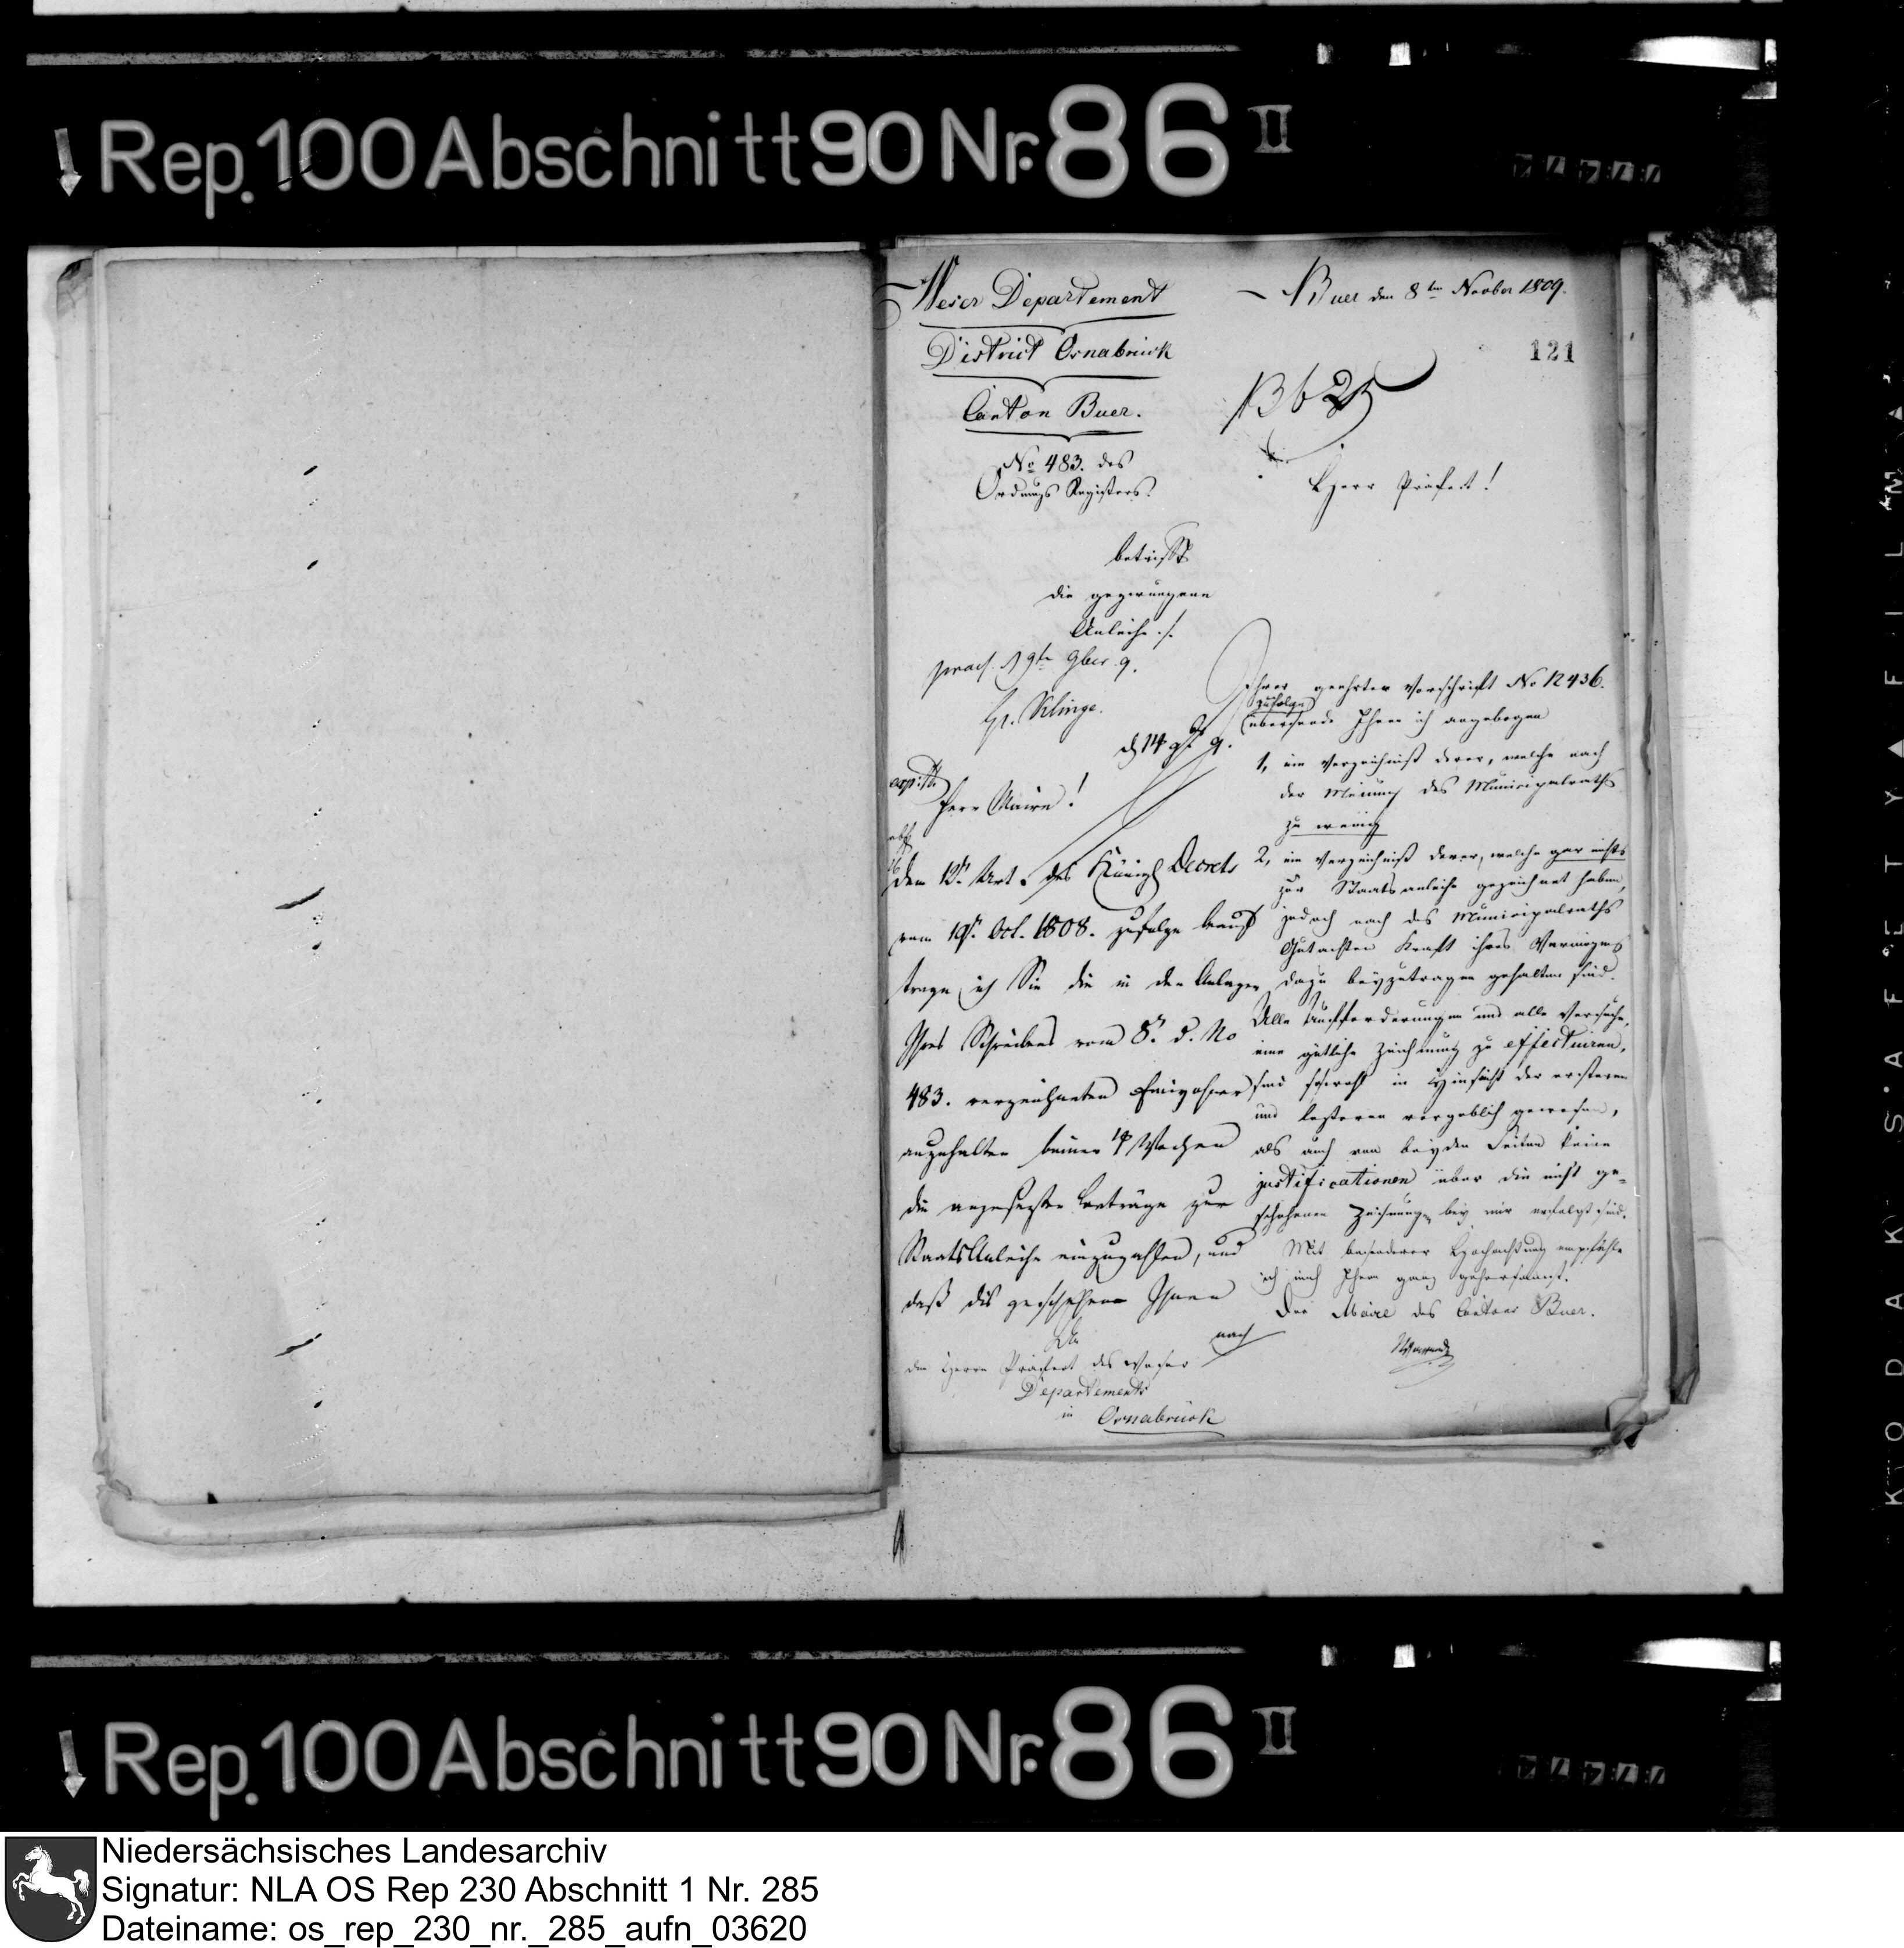 Rep. 100 Abschnitt 90 Nr. 86 II
Weser Departement
District Osnabrück
Canton Buer.
No 483. des
Ordnungs Registers.
Buer den 8ten Novber 1809.
121
Herr Präfect!
betrifft
die gezwungene
Anleihe ./.
praes. d 9t 9ber 9.
Klinge.
Ihrer geehrten Vorschrift No 12436.
zufolge
übersende Ihnen ich angebogen
1, ein Verzeichniß derer, welche nach
der Meinung des Municipalraths
zu wenig
2, ein Verzeichniß derer, welche gar nichts
zur Staatsanleihe gezeichnet haben,
jedoch nach des Municipalraths
Gutachten Kraft ihres Vermögens
dazu beyzutragen gehalten sind.
Alle Aufforderungen und alle Versuche,
eine gütliche Zeichnung zu effectuiren,
sind sowohl in Hinsicht der ersteren
und letzteren vergeblich gewesen,
als auch von beyden Seiten keine
justificationen über die nicht ge-
schehenen Zeichnungen bey mir erfolgt sind.
Mit besonderer Hochachtung empfehle
ich mich Ihnen ganz gehorsamst.
Der Maire des Cantons Buer.
d 14 9br 9.
Herr Maire!
Dem 12n Art. des Königl Decrets
vom 19n Oct. 1808. zufolge beauf
trage ich Sie die in den Anlagen
Ihres Schreibens vom 8n d. No
483. verzeichneten Einwohner
anzuhalten binnen 14 Wochen
die angesetzten Beträge zur
Staats Anleihe einzuzahlen, und
daß dis geschehene Ihnen
nach
An
den Herrn Präfect des Weser
Departements
in Osnabrück
Rep. 100 Abschnitt 90 Nr. 86 II
KODAK SAFETY FILM
Niedersächsisches Landesarchiv
Signatur: NLA OS Rep 230 Abschnitt 1 Nr. 285
Dateiname: os_rep_230_nr._285_aufn_03620